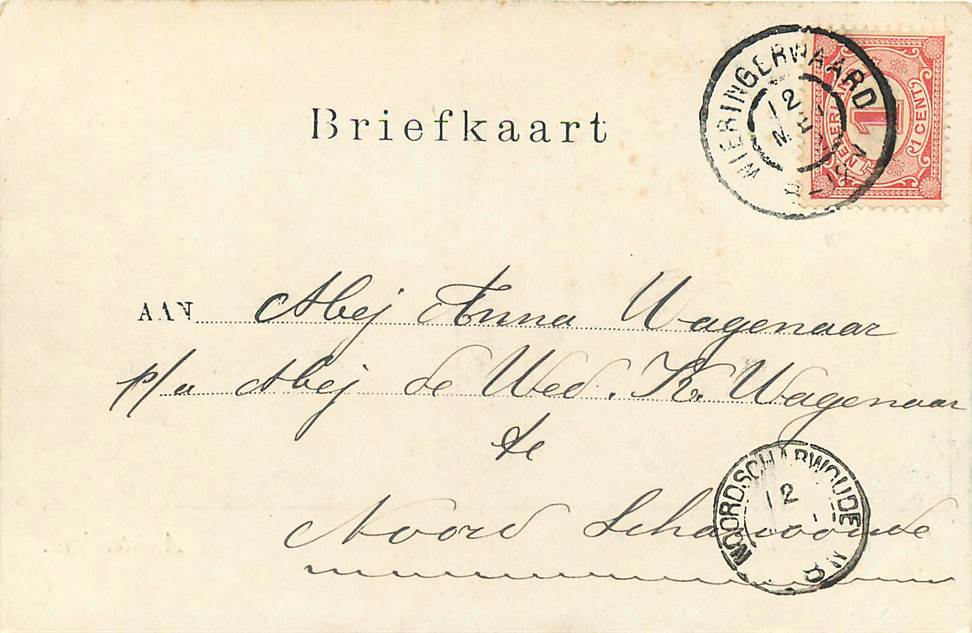 Briefkaart
WIERINGERWAARD
12
8-12V
NEDERLAND
1
1 CENT
AAN Mej Anna Wagenaar
p/a Mej de Wed. K. Wagenaar
te
Noord Scharwoude
NOORDSCHARWOUDE
12
8 N